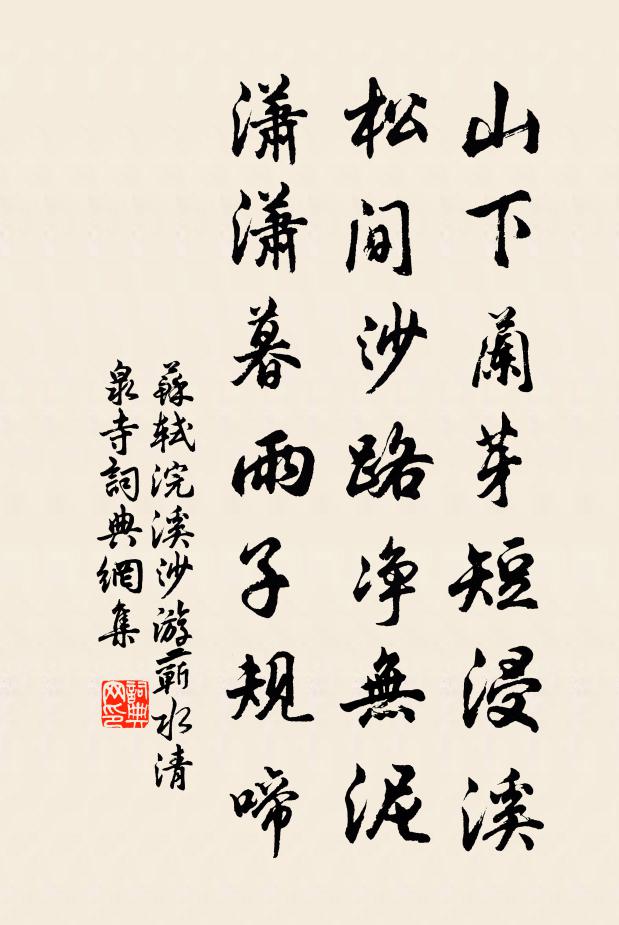 山下蘭芽短浸溪
松間沙路净無泥
瀟瀟暮雨子規啼
蘇軾浣溪沙游蘄水清
泉寺詞典網集
詞典网印